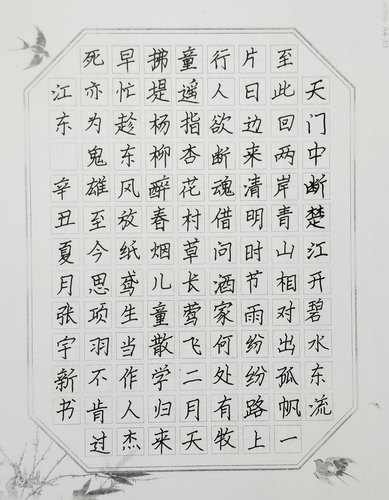 天门中断楚江开碧水东流
至此回两岸青山相对出孤帆一
片日边来清明时节雨纷纷路上
行人欲断魂借问酒家何处有牧
童遥指杏花村草长莺飞二月天
拂堤杨柳醉春烟儿童散学归来
早忙趁东风放纸鸢生当作人杰
死亦为鬼雄至今思项羽不肯过
江东 辛丑夏月张宇新书